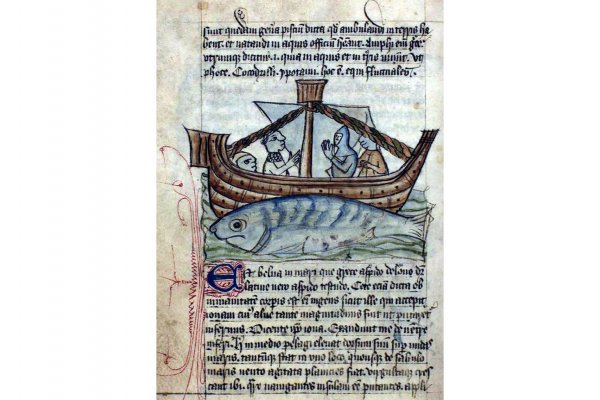 sunt quedam gena piscium dicta qd ambulandi in terris ha
bent. et natandi in aquis officiu Amphi em gre
dicitur. i. quia in aquis et in tris uiuunt. ut
phoce. Cocodrilli. ypotami. hoc e. equi fluctuales.
Est belua in mari que grece aspido delone dr
latine uero aspido testudo. Cete etiam dicta ob
inmanitatem corpis est em ingens sicut ille qui accepit
ionam cui' aluus tante magnitudinis fuit ut putaret
infernus. Dicente ipo iona. Exaudiuit me de uentre
inferi. in medio pelagi eleuat dorsum suum sup undas
maris. stat in uno loco. quousque de sabulo
maris uento agitata planicies fiat. cres
cant ibi. nauigantes insulam ee putantes. appli